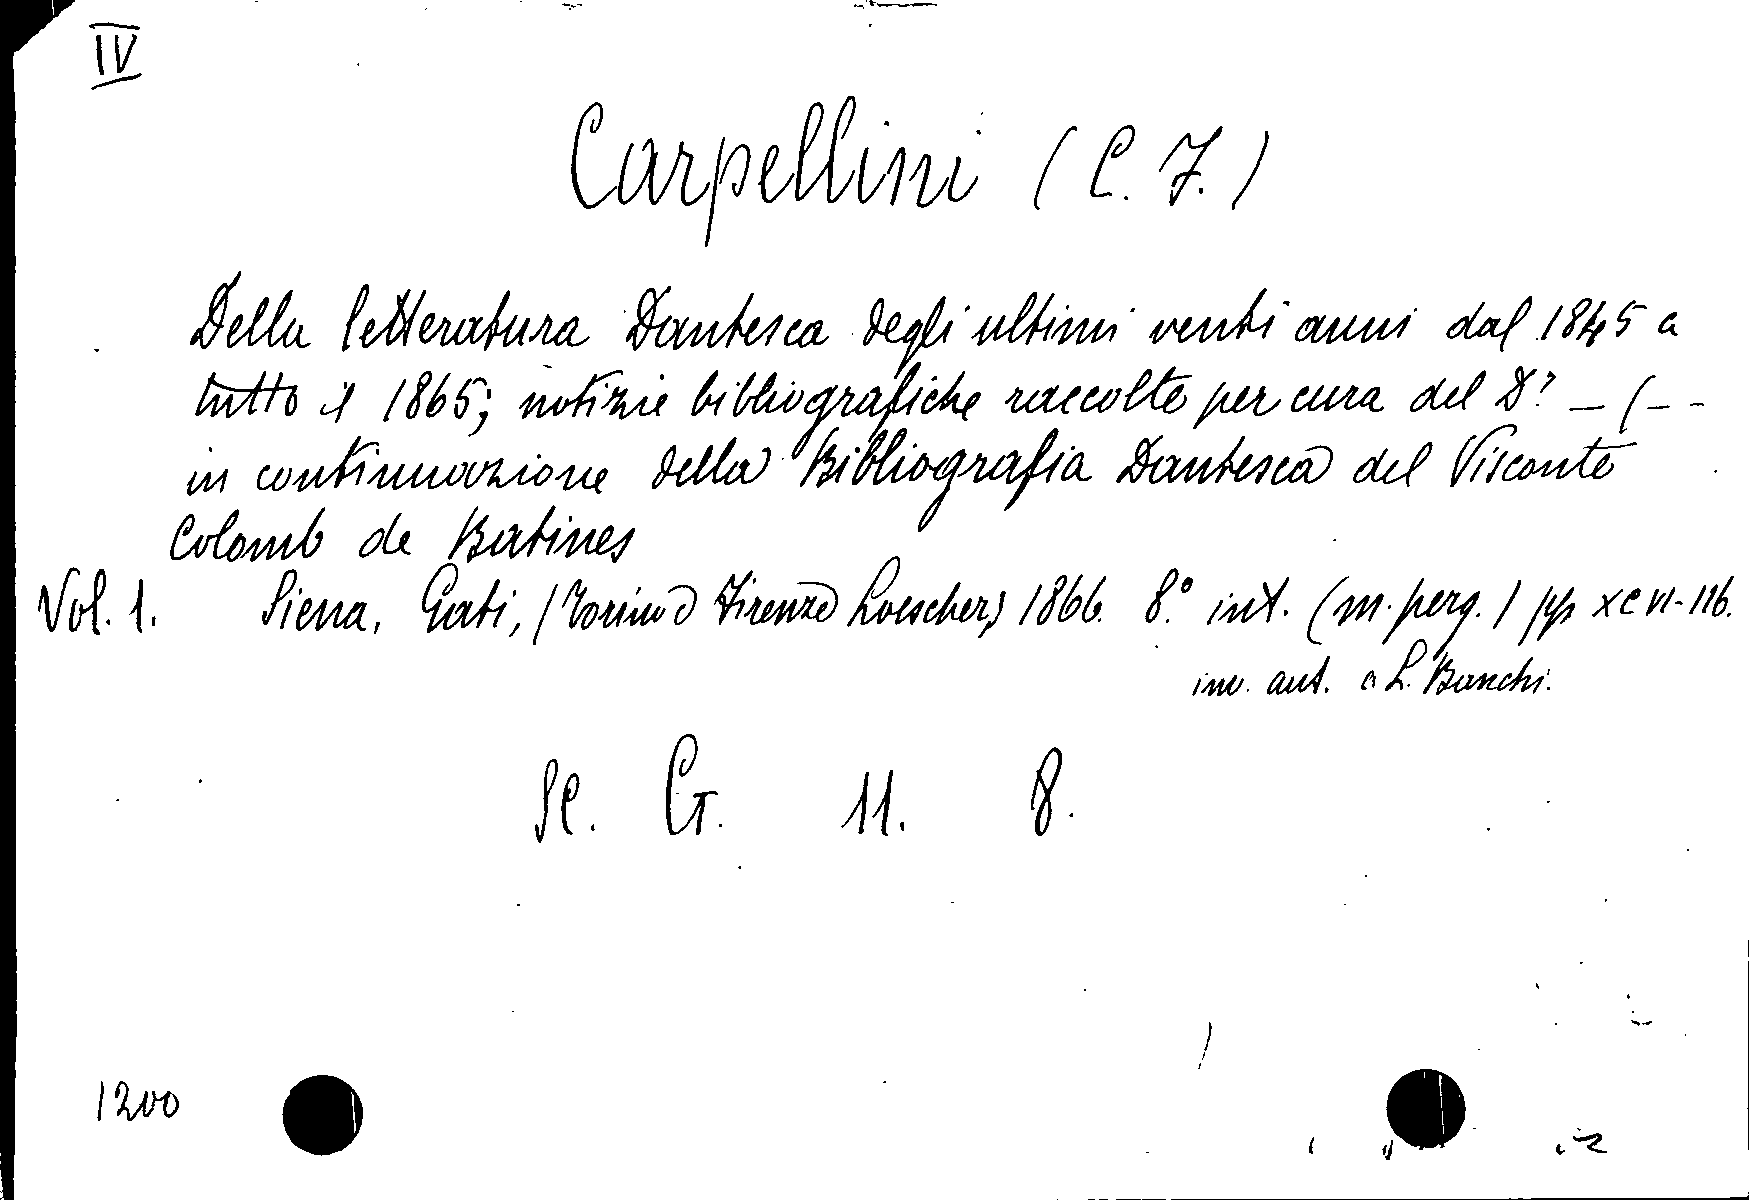 IV
Carpellini (C. F.)
Della letteratura Dantesca degli ultimi venti anni dal 1845 a
tutto il 1865; notizie bibliografiche raccolte per cura del Dr — (--
in continuazione della Bibliografia Dantesca del Visconte
Colomb de Batines
Vol. 1. Siena, Gati, (Torino e Firenze Loescher) 1866. 8.° int. (m. perg.) pp XCVI-116.
inv. aut. a L. Banchi.
Sc. G. 11. 8.
1200